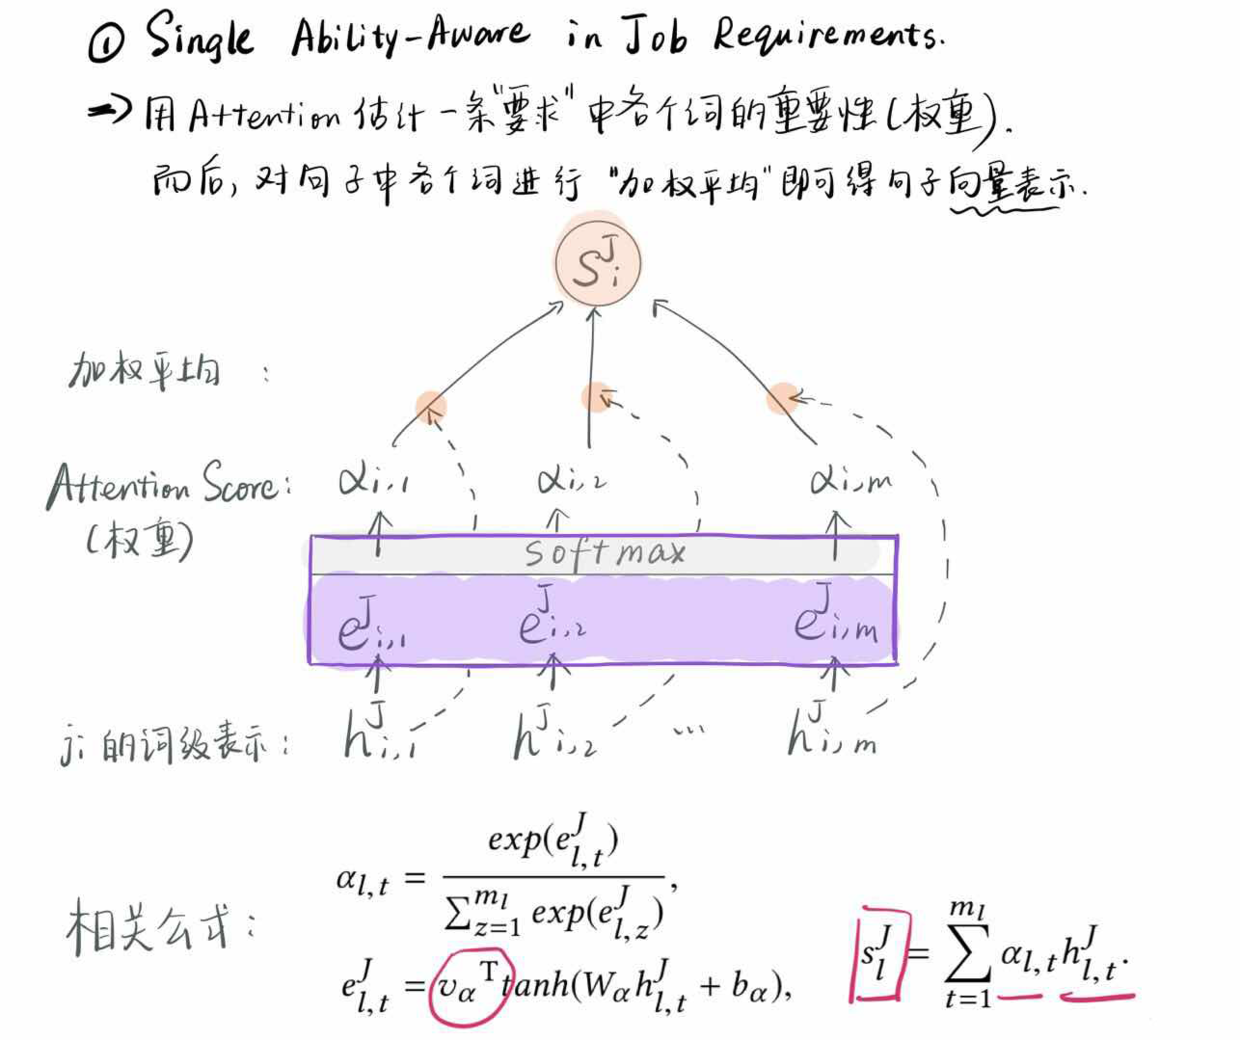 ① Single Ability-Aware in Job Requirements.
=> 用 Attention 估计一条"要求"中各个词的重要性(权重).
而后, 对句子中各个词进行 "加权平均" 即可得句子向量表示.
S_i^J
加权平均 :
Attention Score: α_{i,1} α_{i,2} α_{i,m}
(权重)
softmax
e_{i,1}^J e_{i,2}^J e_{i,m}^J
j_i 的词级表示: h_{i,1}^J h_{i,2}^J ... h_{i,m}^J
相关公式:
α_{l,t} = exp(e_{l,t}^J) / ∑_{z=1}^{m_l} exp(e_{l,z}^J),
e_{l,t}^J = v_α^T tanh(W_α h_{l,t}^J + b_α),
s_l^J = ∑_{t=1}^{m_l} α_{l,t} h_{l,t}^J.